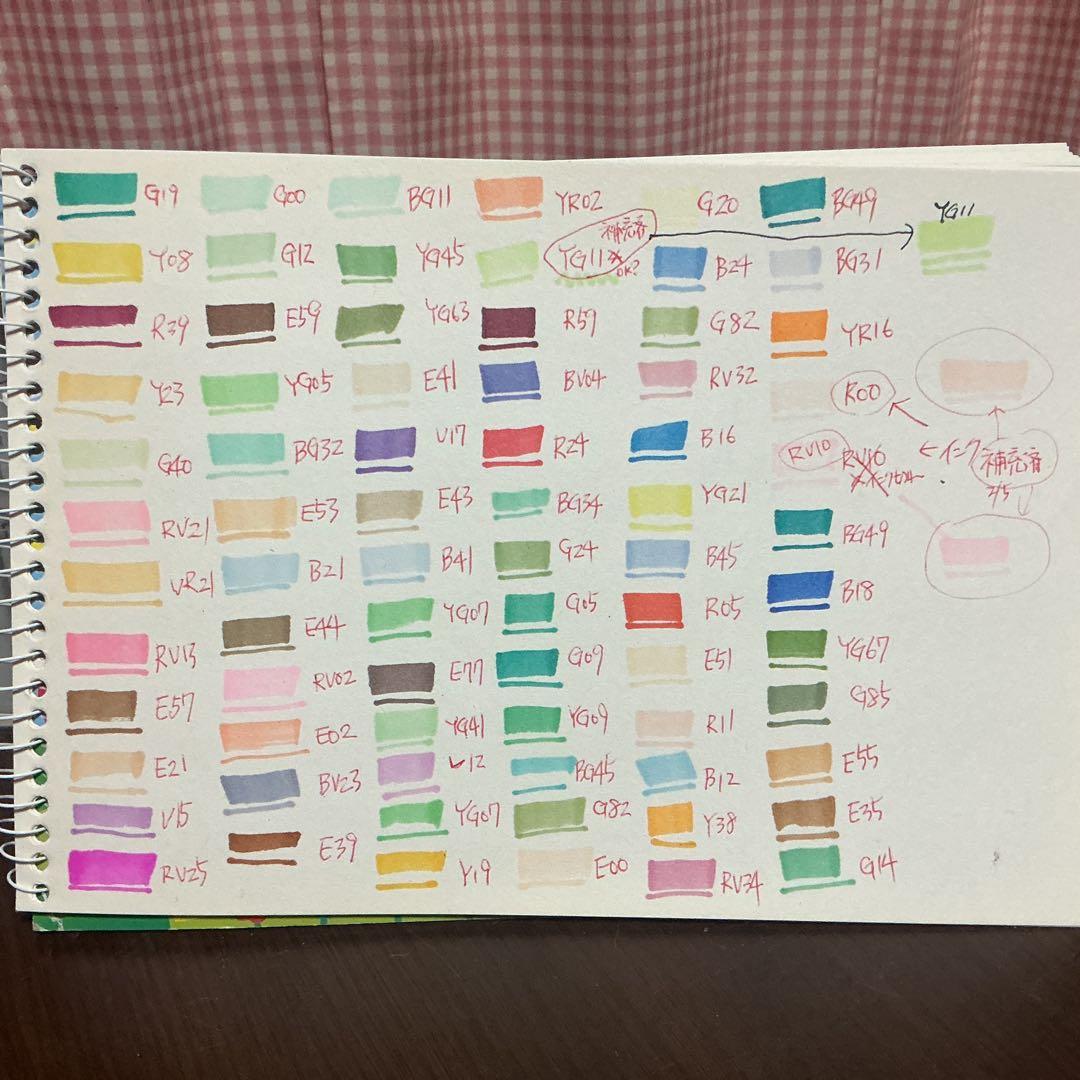 G19 G00 BG11 YR02 G20 BG49
YG11
補充済
Y08 G12 YG45 YG11 B24 BG31
OK?
R39 E59 YG63 R59 G82 YR16
Y23 YG05 E41 BV04 RV32 R00
G40 BG32 V17 R24 B16 RV10 RV10 ←インク 補充済
2/5
RV21 E53 E43 BG34 YG21 BG49
YR21 B21 B41 G24 B45 B18
E44 YG07 G05 R05 YG67
RV13 RV02 E77 G09 E51 G85
E57 E02 YG41 YG09 R11 E55
E21 BV23 V12 BG45 B12 E35
V15 E39 YG07 G82 Y38 G14
RV25 Y19 E00 RV34